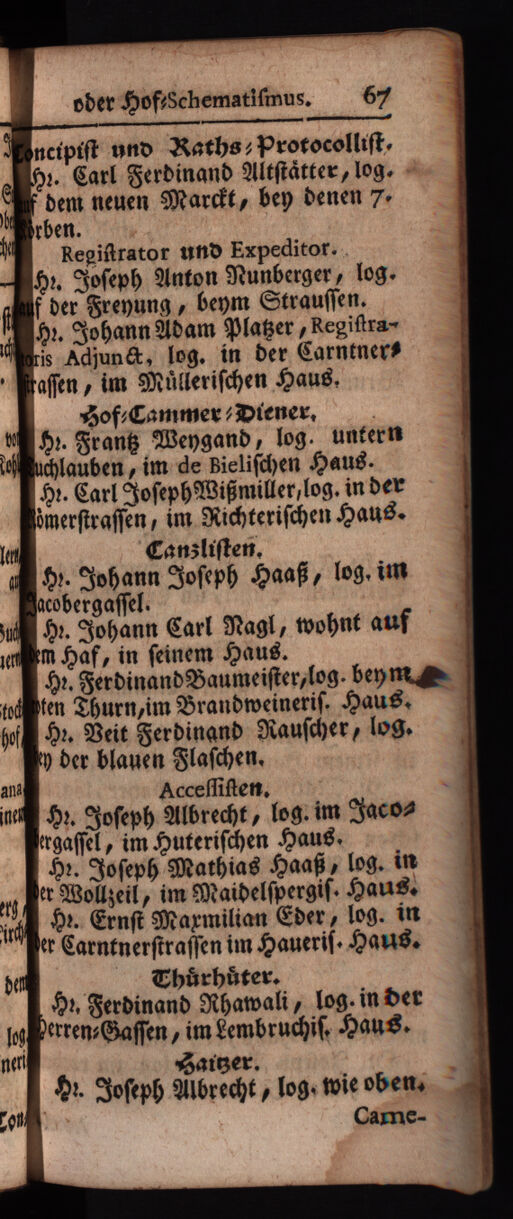 oder Hof-Schematismus. 67
Concipist und Raths-Protocollist.
Hr. Carl Ferdinand Altstätter, log.
auf dem neuen Marckt, bey denen 7.
Körben.
Registrator und Expeditor.
Hr. Joseph Anton Nunberger, log.
auf der Freyung, beym Straussen.
Hr. Johann Adam Platzer, Registra-
toris Adjunct, log. in der Carntner-
strassen, im Müllerischen Haus.
Hof-Cammer-Diener.
Hr. Frantz Weygand, log. untern
Tuchlauben, im de Bielischen Haus.
Hr. Carl Joseph Wißmiller, log. in der
Römerstrassen, im Richterischen Haus.
Canzlisten.
Hr. Johann Joseph Haaß, log. im
Jacobergassel.
Hr. Johann Carl Nagl, wohnt auf
dem Haf, in seinem Haus.
Hr. Ferdinand Baumeister, log. beym
rothen Thurn, im Brandweineris. Haus.
Hr. Veit Ferdinand Rauscher, log.
bey der blauen Flaschen.
Accessisten.
Hr. Joseph Albrecht, log. im Jaco-
bergassel, im Huterischen Haus.
Hr. Joseph Mathias Haaß, log. in
der Wollzeil, im Maidelspergis. Haus.
Hr. Ernst Maxmilian Eder, log. in
der Carntnerstrassen im Haueris. Haus.
Thürhüter.
Hr. Ferdinand Rhawali, log. in der
Herren-Gassen, im Lembruchis. Haus.
Haitzer.
Hr. Joseph Albrecht, log. wie oben.
Came-